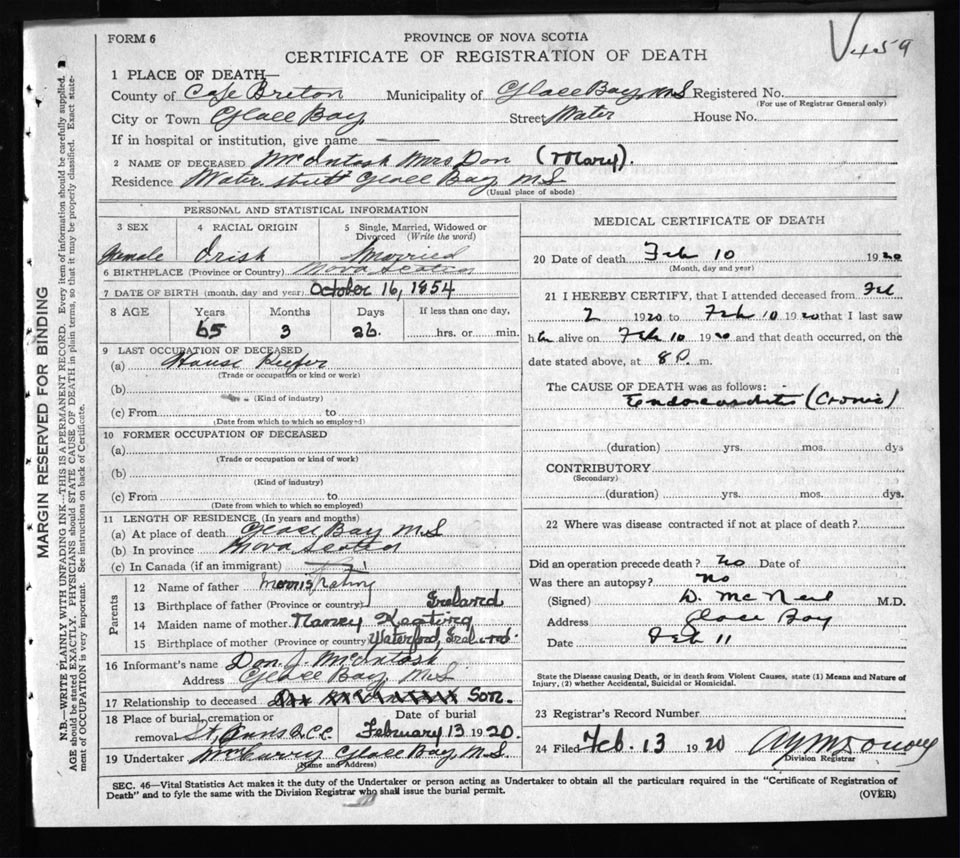 FORM 6
PROVINCE OF NOVA SCOTIA
V459
CERTIFICATE OF REGISTRATION OF DEATH
1 PLACE OF DEATH—
County of Cape Breton Municipality of Glace Bay, N.S Registered No.
(For use of Registrar General only)
City or Town Glace Bay, Street Water House No.
If in hospital or institution, give name
2 NAME OF DECEASED McIntosh Mrs Don (Mary).
Residence Water street Glace Bay N.S
(Usual place of abode)
PERSONAL AND STATISTICAL INFORMATION
3 SEX 4 RACIAL ORIGIN 5 Single, Married, Widowed or Divorced (Write the word)
Female Irish Married
6 BIRTHPLACE (Province or Country) Nova Scotia
7 DATE OF BIRTH (month, day and year) October 16, 1854
8 AGE Years Months Days If less than one day,
65 3 26 hrs. or min.
9 LAST OCCUPATION OF DECEASED
(a) House Keeper
(Trade or occupation or kind or work)
(b)
(Kind of industry)
(c) From to
(Date from which to which so employed)
10 FORMER OCCUPATION OF DECEASED
(a)
(Trade or occupation or kind of work)
(b)
(Kind of industry)
(c) From to
(Date from which to which so employed)
11 LENGTH OF RESIDENCE (In years and months)
(a) At place of death Glace Bay N.S
(b) In province Nova Scotia
(c) In Canada (if an immigrant)
Parents
12 Name of father Morris
13 Birthplace of father (Province or country) Ireland
14 Maiden name of mother Nancy Keating
15 Birthplace of mother (Province or country) Waterford, Ireland.
16 Informant's name Don. J. McIntosh
Address Glace Bay, N.S
17 Relationship to deceased Son.
18 Place of burial, cremation or removal St, Anns R.C.C. Date of burial February 13 1920.
19 Undertaker Wm Curry Glace Bay, N.S.
(Name and Address)
MEDICAL CERTIFICATE OF DEATH
20 Date of death Feb 10 1920
(Month, day and year)
21 I HEREBY CERTIFY, that I attended deceased from Feb
2 1920 to Feb 10 1920 that I last saw
her alive on Feb 10 1920 and that death occurred, on the
date stated above, at 8 P. m.
The CAUSE OF DEATH was as follows:
Endocarditis (Cronic)
(duration) yrs. mos. dys
CONTRIBUTORY
(Secondary)
(duration) yrs. mos. dys.
22 Where was disease contracted if not at place of death?
Did an operation precede death? No Date of
Was there an autopsy? No
(Signed) D. McNeil M.D.
Address Glace Bay
Date Feb 11
State the Disease causing Death, or in death from Violent Causes, state (1) Means and Nature of
Injury, (2) whether Accidental, Suicidal or Homicidal.
23 Registrar's Record Number
24 Filed Feb. 13 1920
Division Registrar
SEC. 46—Vital Statistics Act makes it the duty of the Undertaker or person acting as Undertaker to obtain all the particulars required in the "Certificate of Registration of
Death" and to fyle the same with the Division Registrar who shall issue the burial permit.
(OVER)
MARGIN RESERVED FOR BINDING
N.B.—WRITE PLAINLY WITH UNFADING INK—THIS IS A PERMANENT RECORD. Every item of information should be carefully supplied.
AGE should be stated EXACTLY. PHYSICIANS should STATE CAUSE OF DEATH in plain terms, so that it may be properly classified. Exact state-
ment of OCCUPATION is very important. See instructions on back of Certificate.